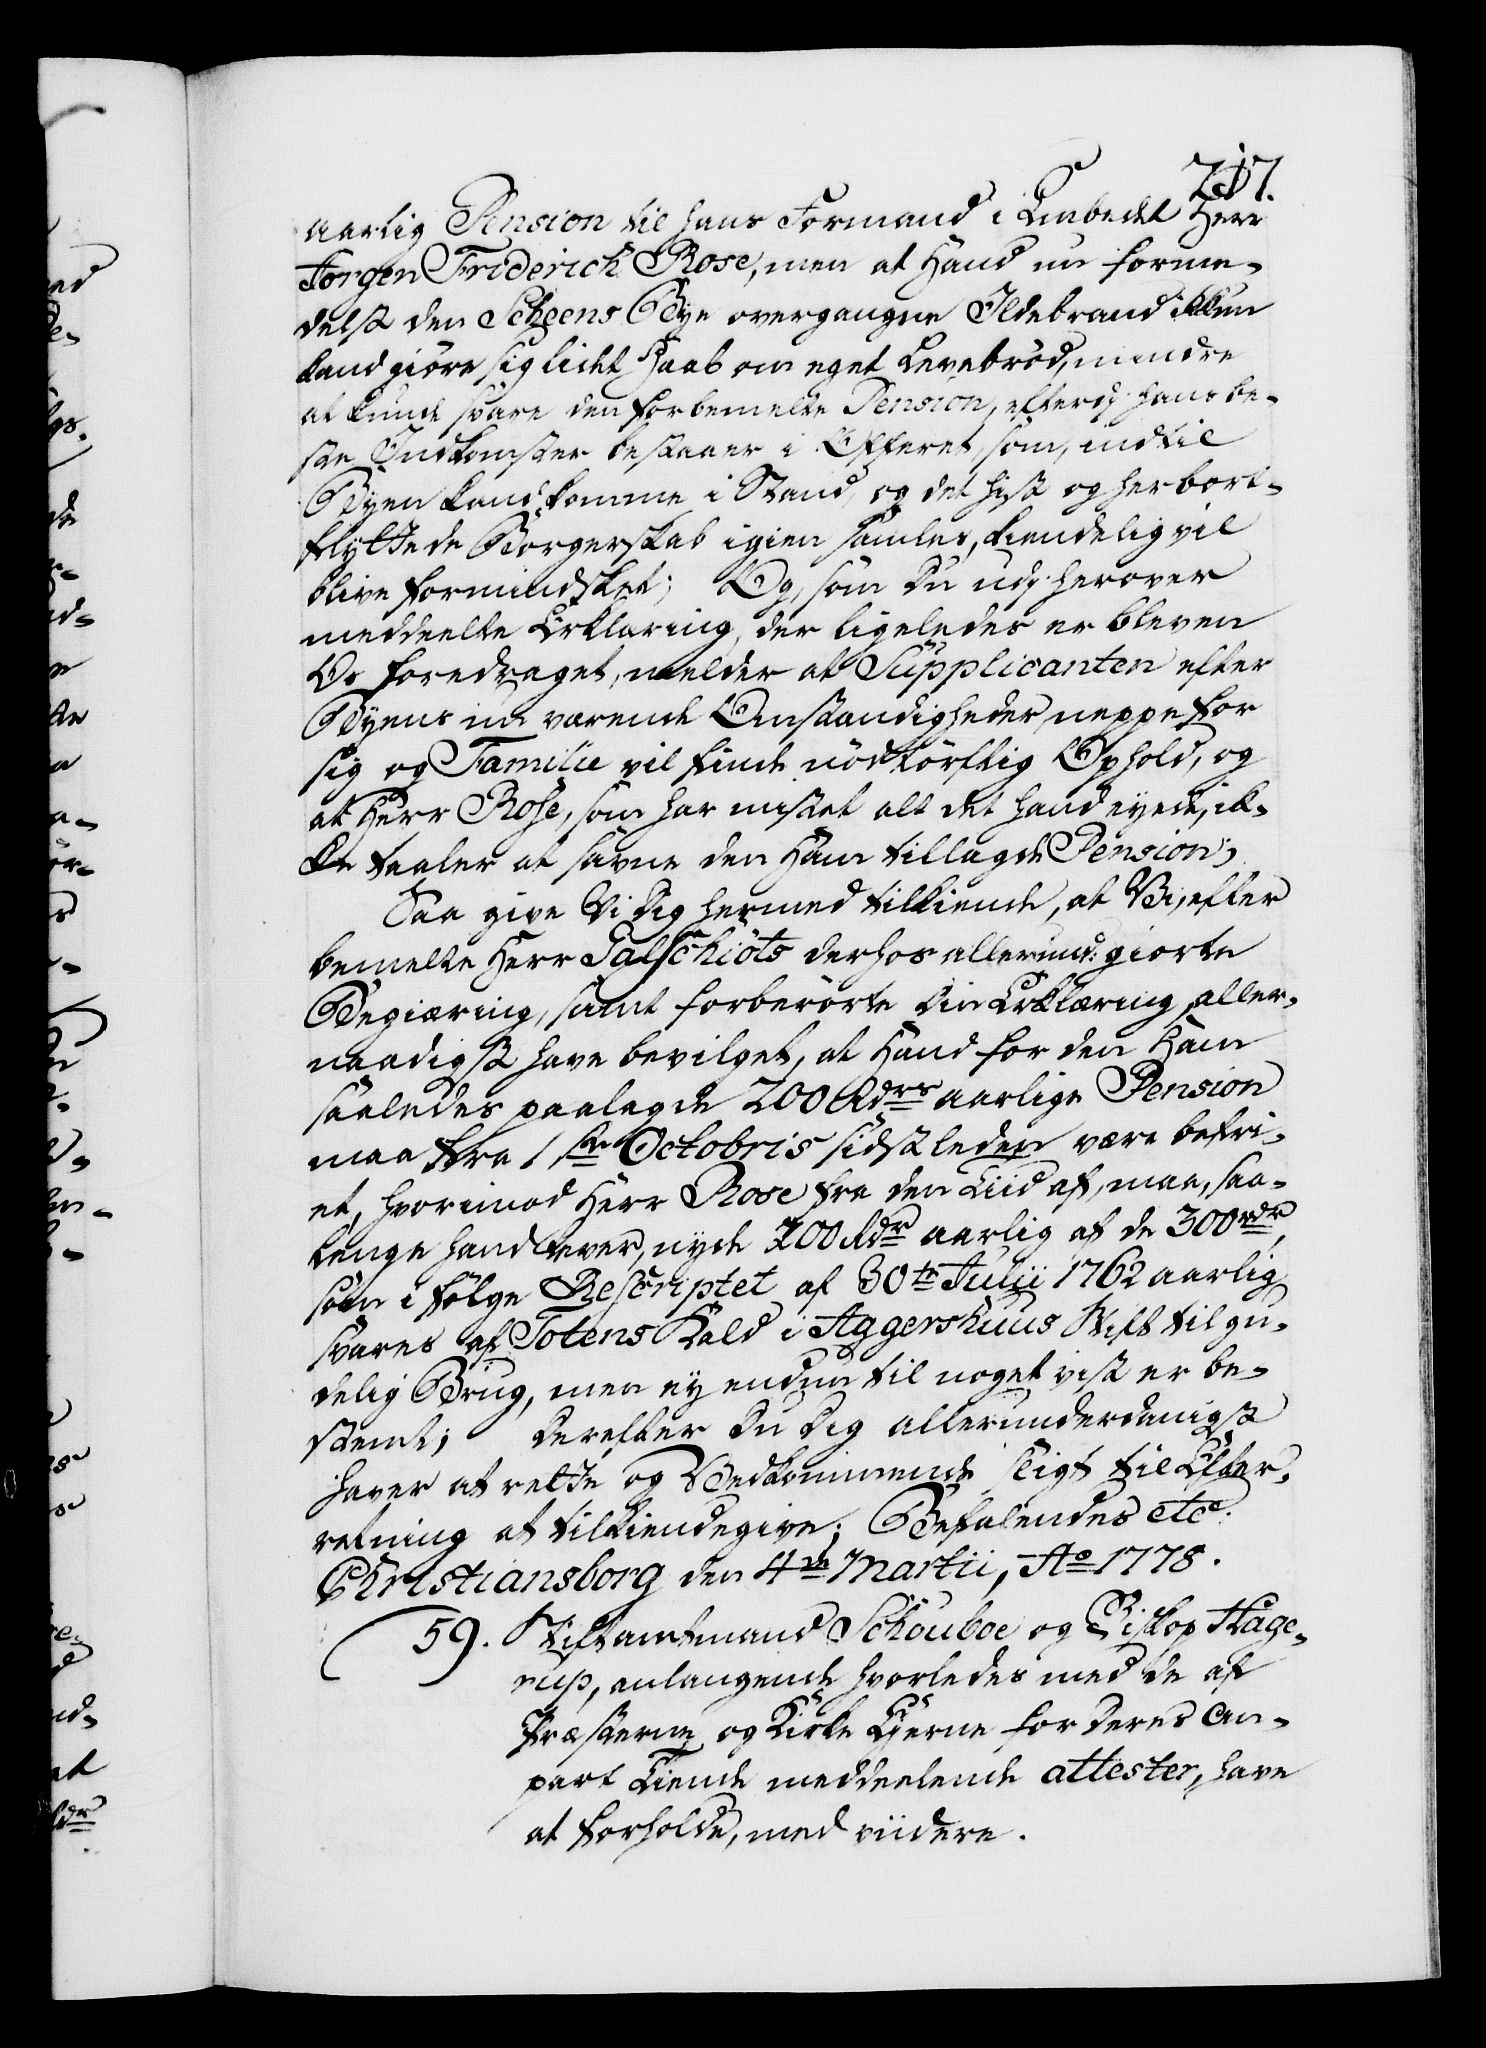 717.
aarlig Pension til hans Formand i Embedet Herr
Jørgen Friderich Rose, men at Hand nu forme-
delst den Scheens Bye overgangne Ildebrand ikkun
kand giøre sig lidet Haab om eget Levebrød, mindre
at kunde svare den forbemelte Pension, efterdj hans be-
ste Indkomster bestaaer i Offeret, som, indtil
Byen kand komme i Stand, og det hist og her bort-
flyttede Borgerskab igien samles, kiendelig vil
blive formindsket; Og, som Du udj herover
meddeelte Erklæring, der ligeledes er bleven
Os foredraget, melder at Supplicanten efter
Byens nu værende Omstændigheder, neppe for
sig og Familie vil finde nødtørftig Ophold, og
at Herr Rose, som har mistet alt det hand eyede, ik-
ke taaler at savne den Ham tillagde Pension;
Saa give Vi Dig hermed tilkiende, at Vi, efter
bemelte Herr Galschiøts derhos allerund: giorte
Begiæring, samt forberørte Din Erklæring, aller-
naadigst have bevilget, at Hand for den Ham
saaledes paalagde 200 Rdrs aarlige Pension
maa fra 1ste Octobris sidstleden være befri-
et, hvorimod Herr Rose fra den Tiid af, maa, saa-
længe hand lever, nyde 200 Rdr aarlig af de 300 rdr,
som i følge Rescriptet af 30te Julii 1762 aarlig
svares af Totens Kald i Aggershuus Stift til gu-
delig Brug, men ey endnu til noget vist er be-
stemt; Derefter Du Dig allerunderdanigst
haver at rette og Vedkommende sligt til Efter-
retning at tilkiendegive; Befalendes etc:
Christiansborg den 4de Martii, Ao 1778.
59. Stiftamtmand Schouboe og Biskop Hage-
rup, anlangende hvorledes med de af
Præsterne og Kirke Ejerne for deres An-
part Tiende meddeelende attester, have
at forholde, med viidere.